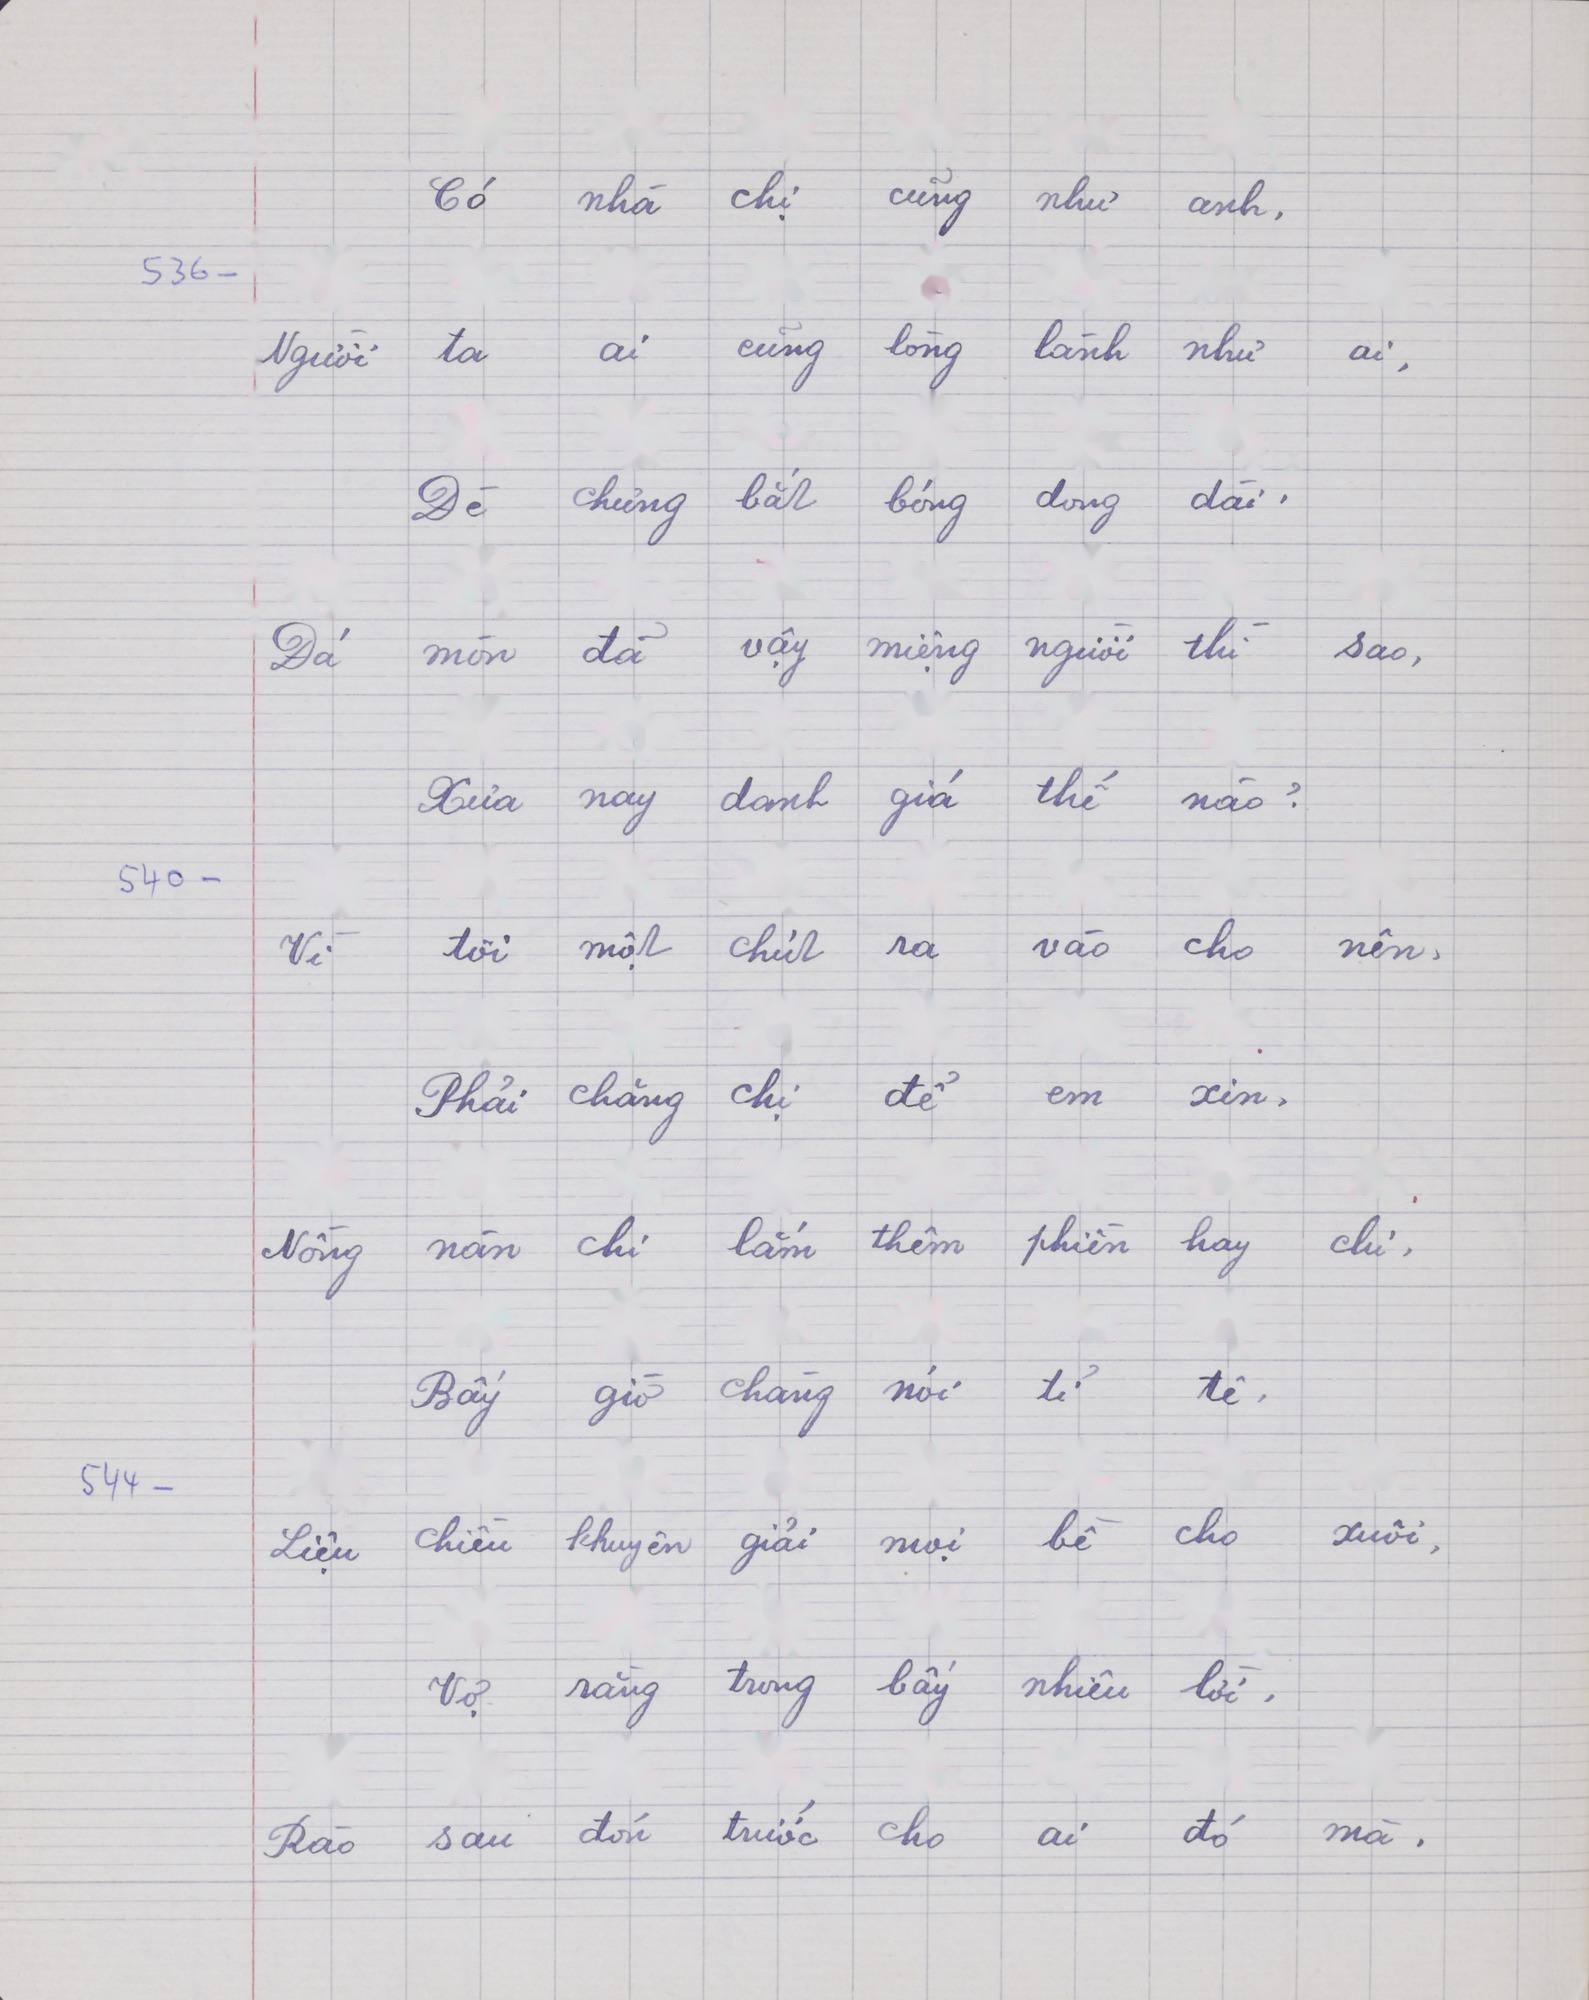 Có nhà chị cũng như anh,
536-
Người ta ai cũng lòng lành như ai,
Dè chừng bắt bóng dong dài,
Dá mòn đã vậy miệng người thì sao,
Xưa nay danh giá thế nào?
540-
Vì tôi một chút ra vào cho nên,
Phải chăng chị để em xin,
Nồng nàn chi lắm thêm phiền hay chi,
Bấy giờ chàng nói tỉ tê,
544-
Liệu chiều khuyên giải mọi bề cho xuôi,
Vợ rằng trong bấy nhiêu lời,
Rào sau đón trước cho ai đó mà,